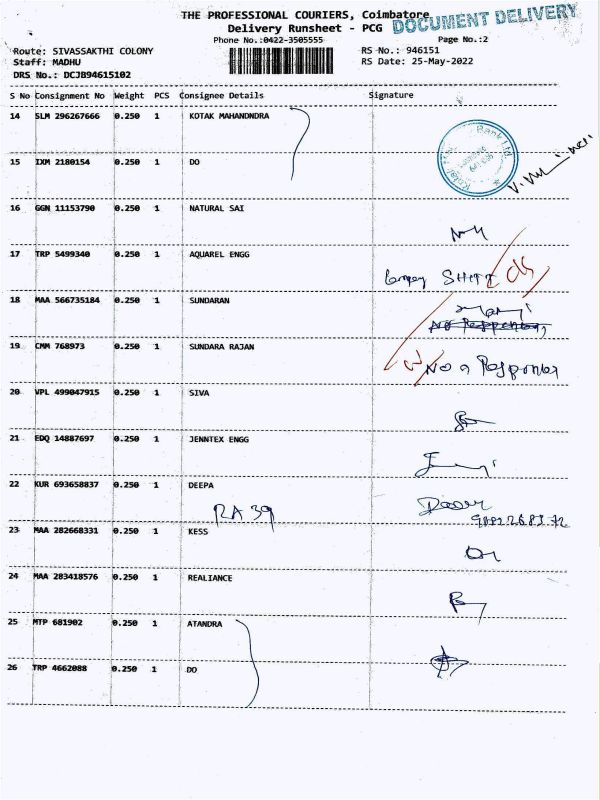 THE PROFESSIONAL COURIERS, Coimbatore
DOCUMENT DELIVERY
Delivery Runsheet - PCG
Phone No.:0422-3505555 Page No.:2
Route: SIVASSAKTHI COLONY RS No.: 946151
Staff: MADHU RS Date: 25-May-2022
DRS No.: DCJ894615102
S No Consignment No Weight PCS Consignee Details Signature
14 SLM 296267666 0.250 1 KOTAK MAHANDNDRA
Bank Ltd.
15 IXM 2180154 0.250 1 DO
16 GGN 11153790 0.250 1 NATURAL SAI
17 TRP 5499340 0.250 1 AQUAREL ENGG
18 MAA 566735184 0.250 1 SUNDARAN
19 CMM 768973 0.250 1 SUNDARA RAJAN
20 VPL 499047915 0.250 1 SIVA
21 EDQ 14887697 0.250 1 JENNTEX ENGG
22 KUR 693658837 0.250 1 DEEPA
RA 39
23 MAA 282668331 0.250 1 KESS
24 MAA 283418576 0.250 1 REALIANCE
25 MTP 681902 0.250 1 ATANDRA
26 TRP 4662088 0.250 1 DO